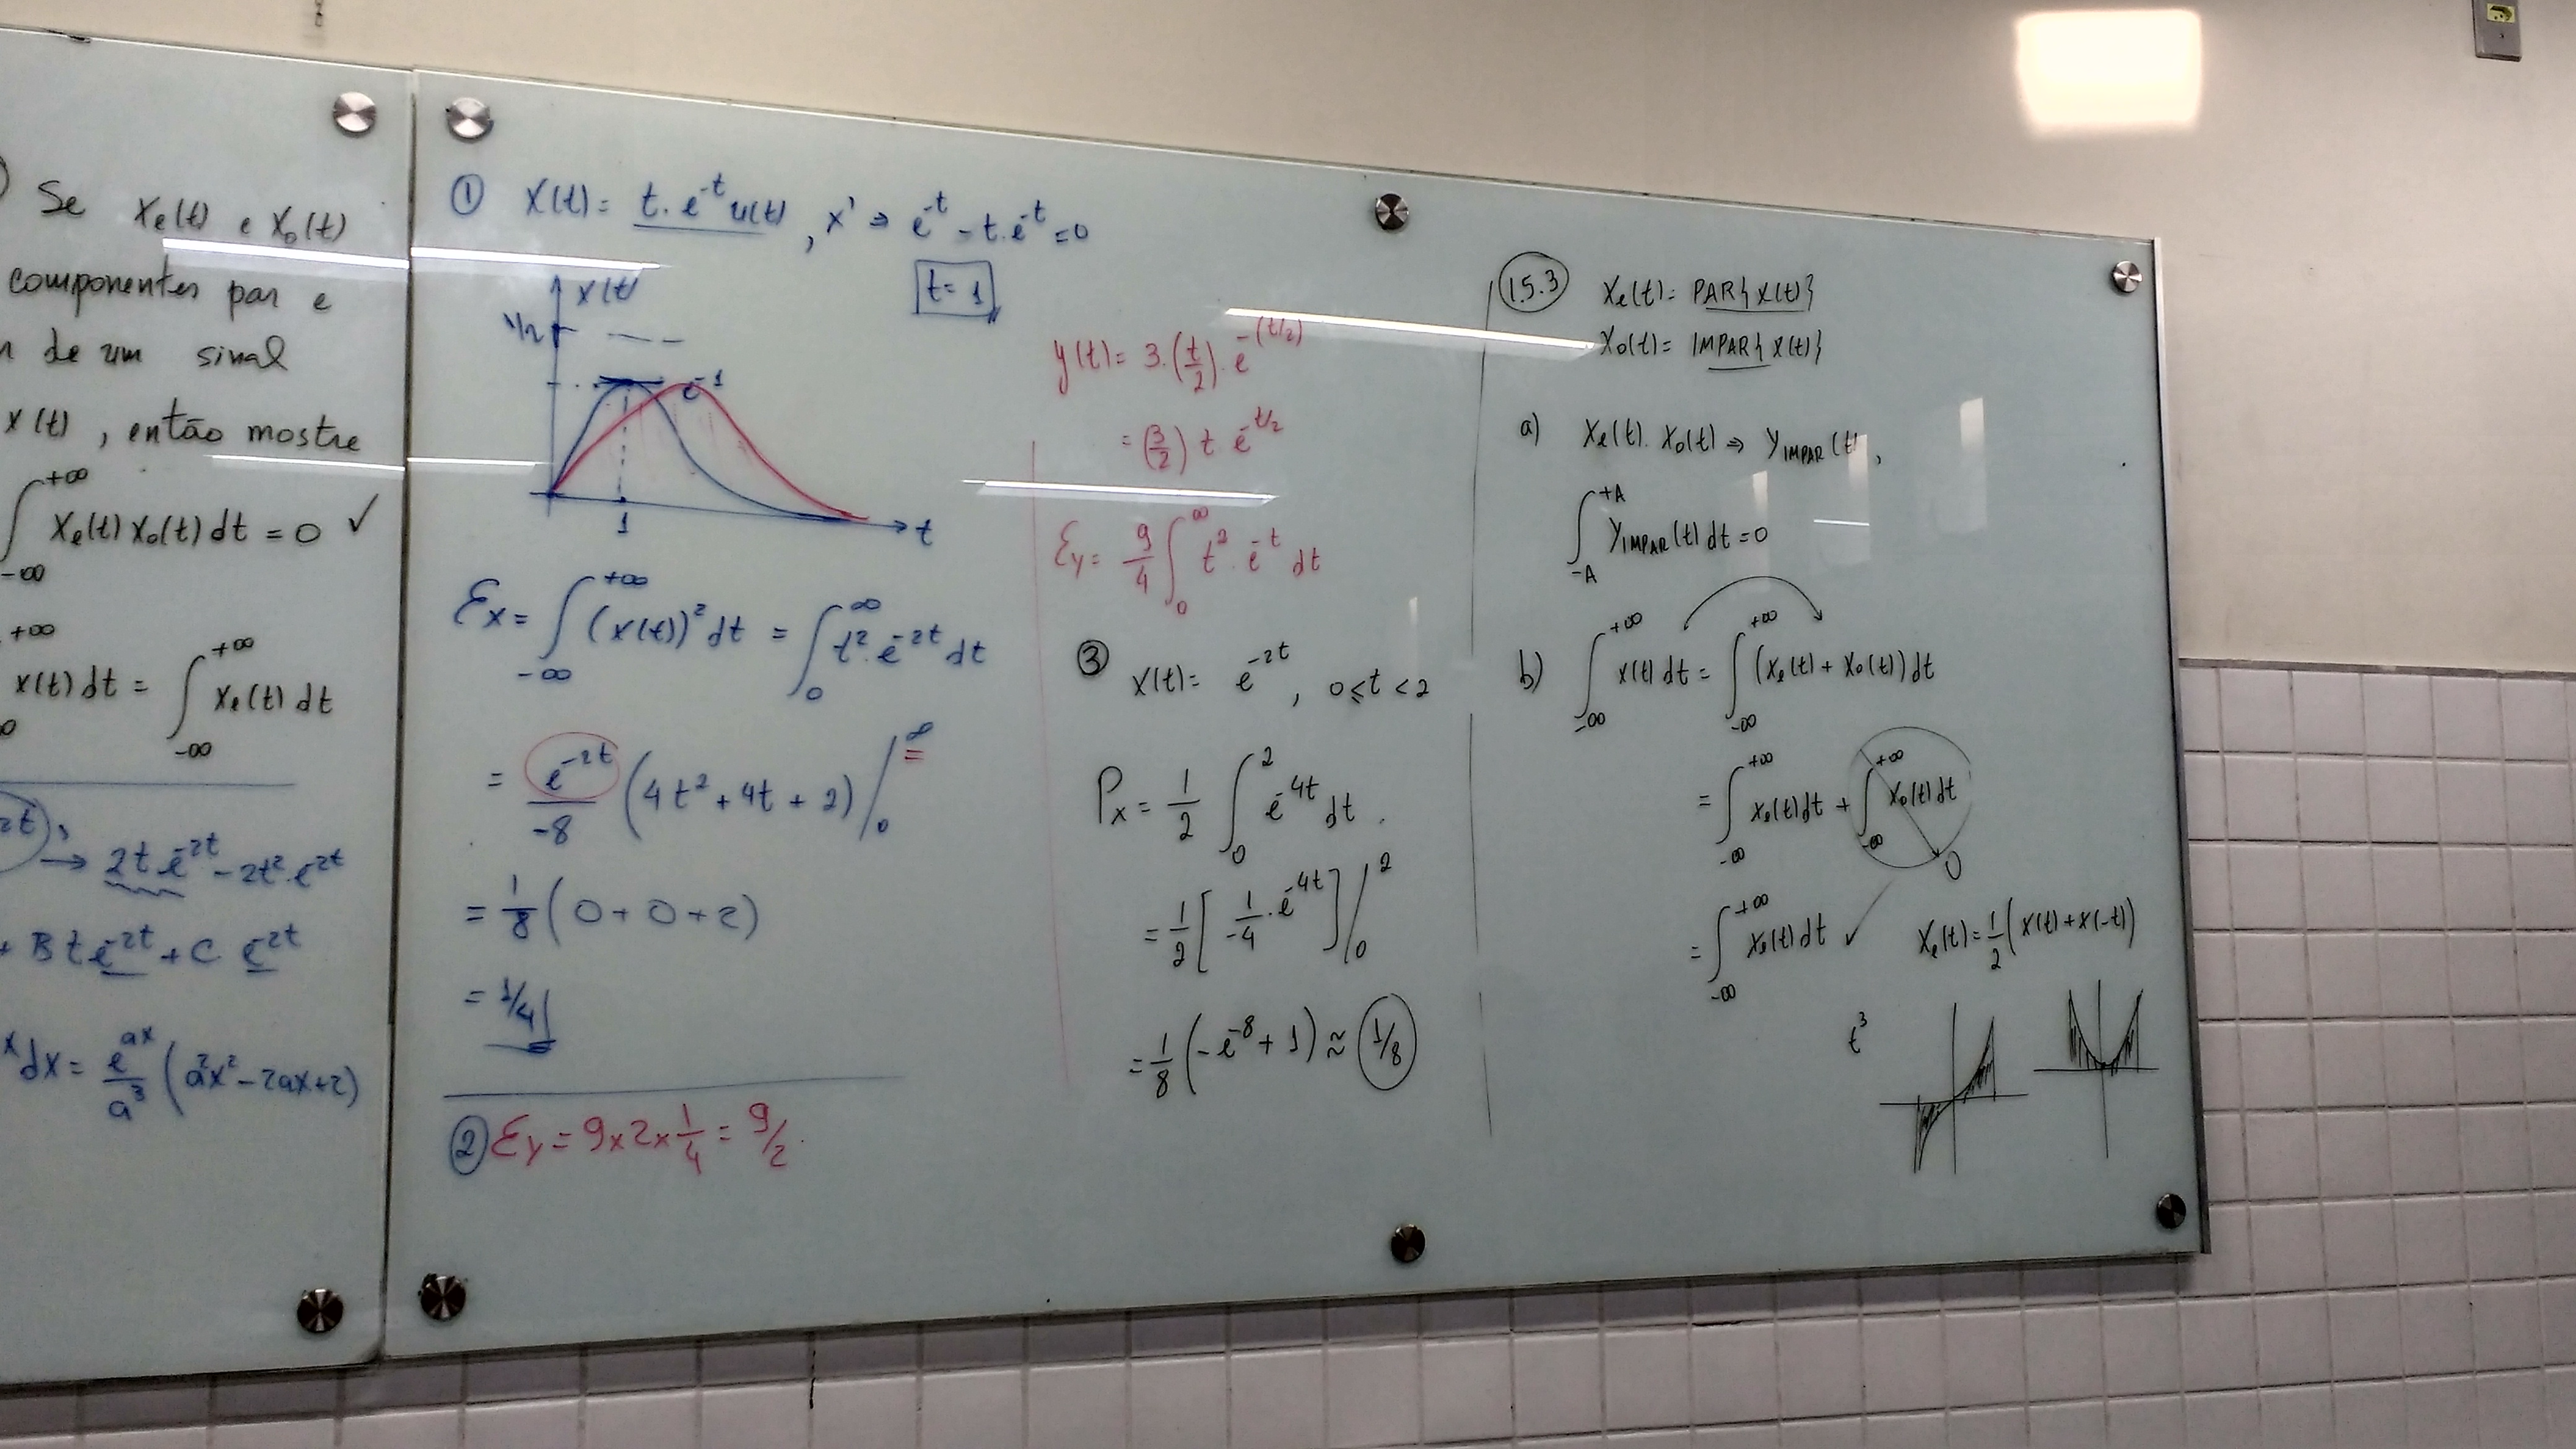 Se Xe(t) e Xo(t)
componentes par e
de um sinal
x(t), então mostre
∫_{-∞}^{+∞} Xe(t) Xo(t) dt = 0 ✓
x(t) dt = ∫_{-∞}^{+∞} Xe(t) dt
→ 2t e^{-2t} - 2t² e^{-2t}
+ B t e^{-2t} + C. e^{-2t}
dx = e^{ax}/a³ (a²x² - 2ax + 2)
① X(t) = t. e^{-t} u(t), x' ⇒ e^{-t} - t. e^{-t} = 0
t = 1
x(t)
1/2
e^{-1}
1
t
Ex = ∫_{-∞}^{+∞} (x(t))² dt = ∫_0^∞ t². e^{-2t} dt
= e^{-2t}/-8 (4t² + 4t + 2) |_0^∞
= 1/8 (0 + 0 + 2)
= 1/4
② Ey = 9 x 2 x 1/4 = 9/2.
y(t) = 3. (t/2). e^{-(t/2)}
= (3/2) t e^{-t/2}
Ey = 9/4 ∫_0^∞ t². e^{-t} dt
③ X(t) = e^{-2t}, 0 ≤ t < 2
Px = 1/2 ∫_0^2 e^{-4t} dt.
= 1/2 [1/-4 . e^{-4t}] |_0^2
= 1/8 (-e^{-8} + 1) ≈ 1/8
1.5.3 Xe(t) = PAR{x(t)}
Xo(t) = IMPAR{x(t)}
a) Xe(t). Xo(t) ⇒ Y_{IMPAR}(t),
∫_{-A}^{+A} Y_{IMPAR}(t) dt = 0
b) ∫_{-∞}^{+∞} x(t) dt = ∫_{-∞}^{+∞} (Xe(t) + Xo(t)) dt
= ∫_{-∞}^{+∞} xe(t) dt + ∫_{-∞}^{+∞} xo(t) dt 0
= ∫_{-∞}^{+∞} xe(t) dt ✓ Xe(t) = 1/2 (x(t) + x(-t))
t³